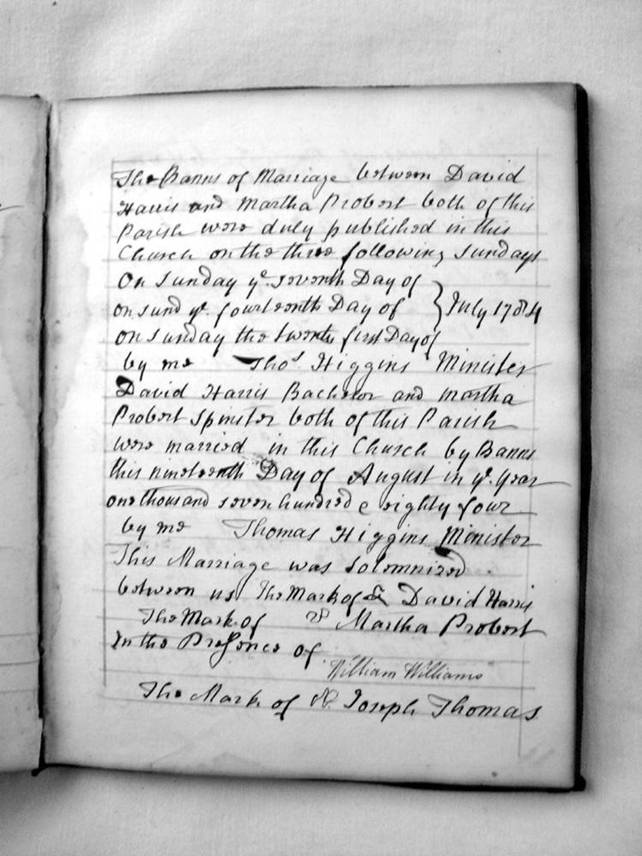 The Banns of Marriage between David
Harris and Martha Probert both of this
Parish were duly published in this
Church on the three following Sundays
On Sunday ye. seventh Day of
on sund ye. fourteenth Day of } July 1784
on Sunday the twenty first Day of
by me Thos. Higgins Minister
David Harris Bachelor and Martha
Probert Spinster both of this Parish
were married in this Church by Banns
this nineteenth Day of August in ye. Year
one thousand seven hundred & eighty four
by me Thomas Higgins Minister
This Marriage was Solemnized
between us The Mark of David Harris
The Mark of Martha Probert
In the Presence of
William Williams
The Mark of Joseph Thomas